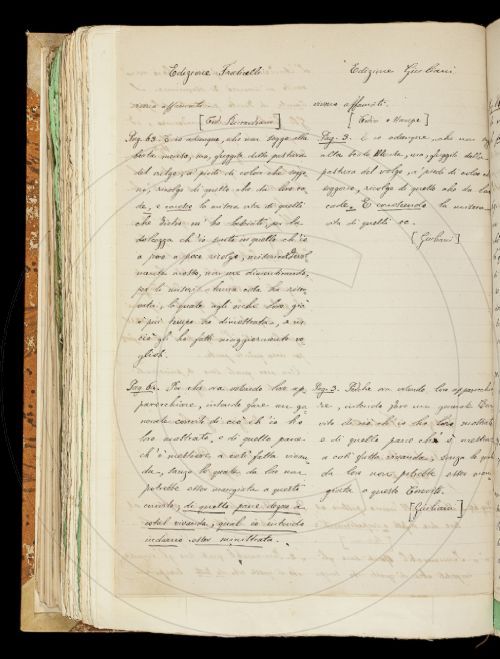 Edizione Fraticelli
vivere affamati.
[Cod. Riccardiano]
Pag. 63. E io adunque, che non seggo alla
beata mensa, ma, fuggito dalla pastura
del volgo, a' piedi di coloro che seggo
no, ricolgo di quello che da lor ca
de, e conosco la misera vita di quelli
che dietro m'ho lasciati, per la
dolcezza ch'io sento in quello ch'io
a poco a poco ricolgo, misericordevol
mente mosso, non me dimenticando,
per li miseri alcuna cosa ho riser
vata, la quale agli occhi loro già
è più tempo ho dimostrata, e in
ciò gli ho fatti maggiormente vo
gliosi.
Pag. 64. Per che ora volendo loro ap
parecchiare, intendo fare un ge
nerale convito di ciò ch'io ho
loro mostrato, e di quello pane
ch'è mestiere a così fatta vivan
da, senza lo quale da lor non
potrebbe esser mangiata a questo
convito; di quello pane degno a
cotal vivanda, qual io intendo
indarno esser ministrata.
Edizione Giuliani
vivere affamati.
[Codici e Stampe]
Pag. 3. E io adunque, che non
alla beata Mensa, ma, fuggito dalla
pastura del volgo, a' piedi di coloro
seggono, ricolgo di quello che da lor
cade. E conoscendo la misera
vita di quelli ec.
[Giuliani]
Pag. 3. Perchè ora volendo loro apparecchia
re, intendo fare un generale Con
vito di ciò ch'io ho loro mostrato
e di quello pane ch'è mestiere
a così fatta vivanda, senza lo quale
da loro non potrebbe esser man
giata a questo Convito.
[Giuliani]